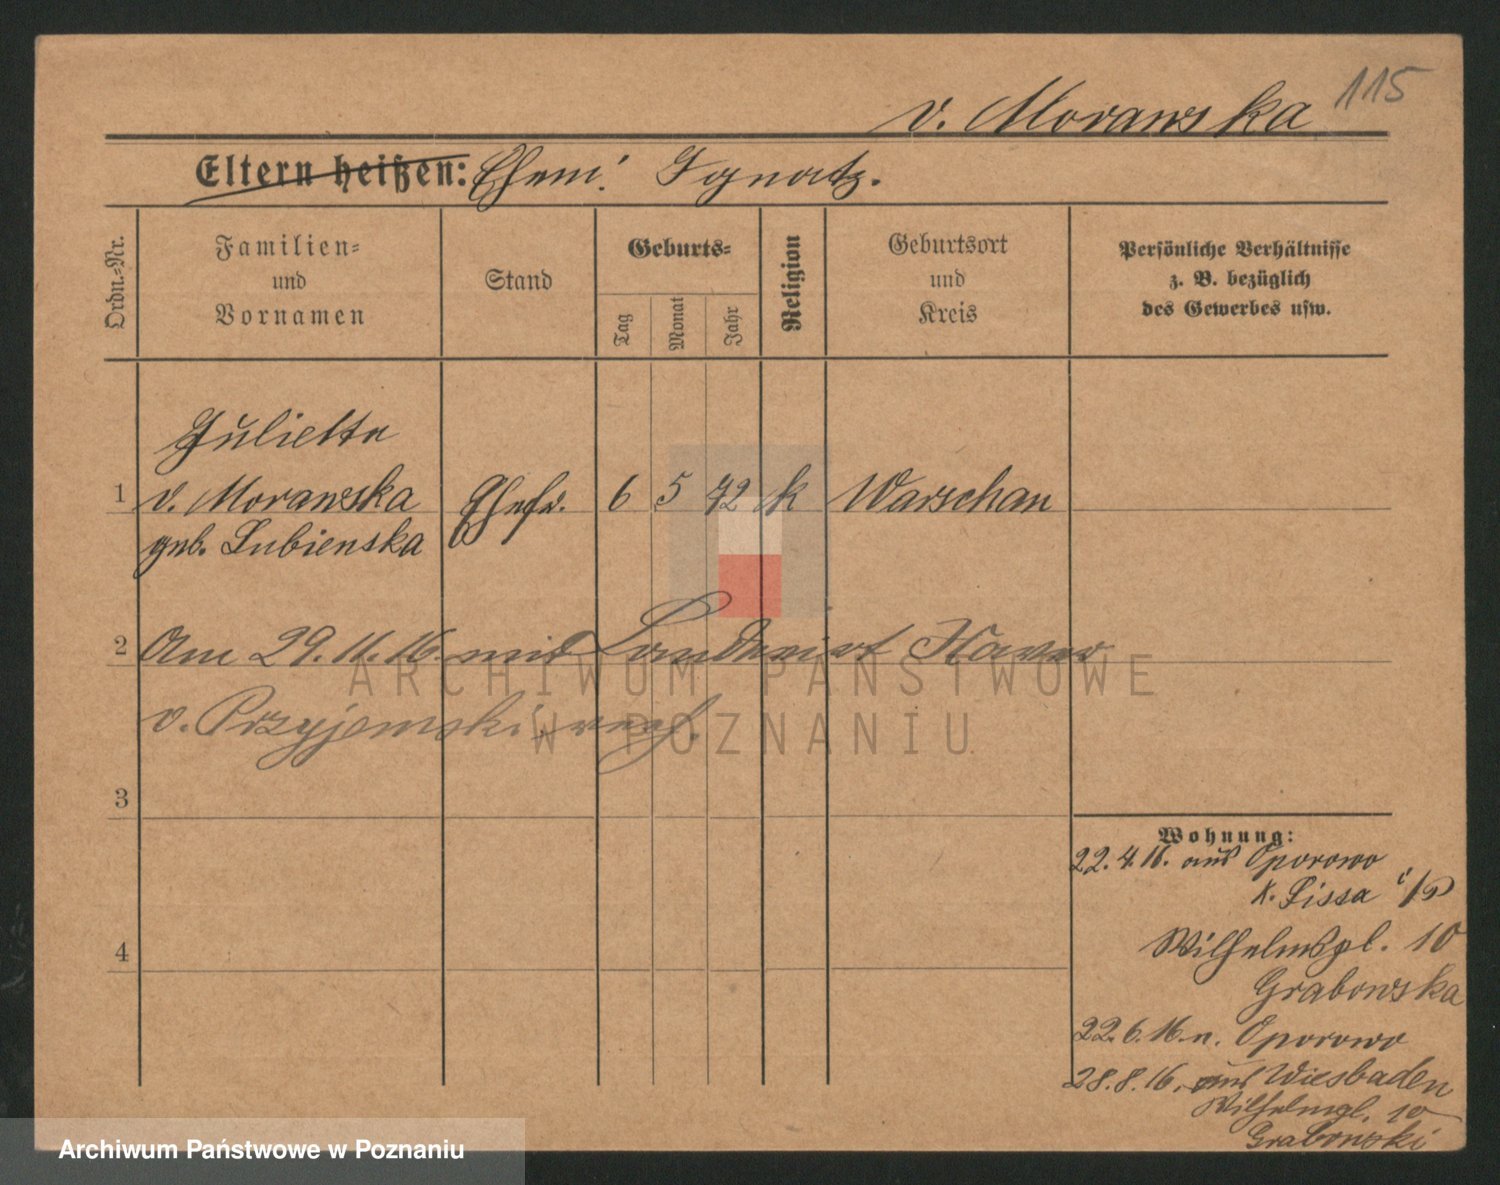 115
v. Morawska
Eltern heißen: Ehem. Ignatz.
Ordn.-Nr.
Familien-
und
Vornamen
Stand
Geburts-
Tag
Monat
Jahr
Religion
Geburtsort
und
Kreis
Persönliche Verhältnisse
z. B. bezüglich
des Gewerbes usw.
Julietta
1 v. Morawska Ehefr. 6 5 72 k Warschau
geb. Lubienska
2 Am 29.11.16. mit Landwirt Xaver
v. Przyjemski verh.
3
4
Wohnung:
22.4.16. aus Oporowo
K. Lissa i/P
Wilhelmspl. 10
Grabowska
22.6.16 n. Oporowo
28.8.16. aus Wiesbaden
Wilhelmspl. 10
Grabowski
ARCHIWUM PAŃSTWOWE
W POZNANIU
Archiwum Państwowe w Poznaniu